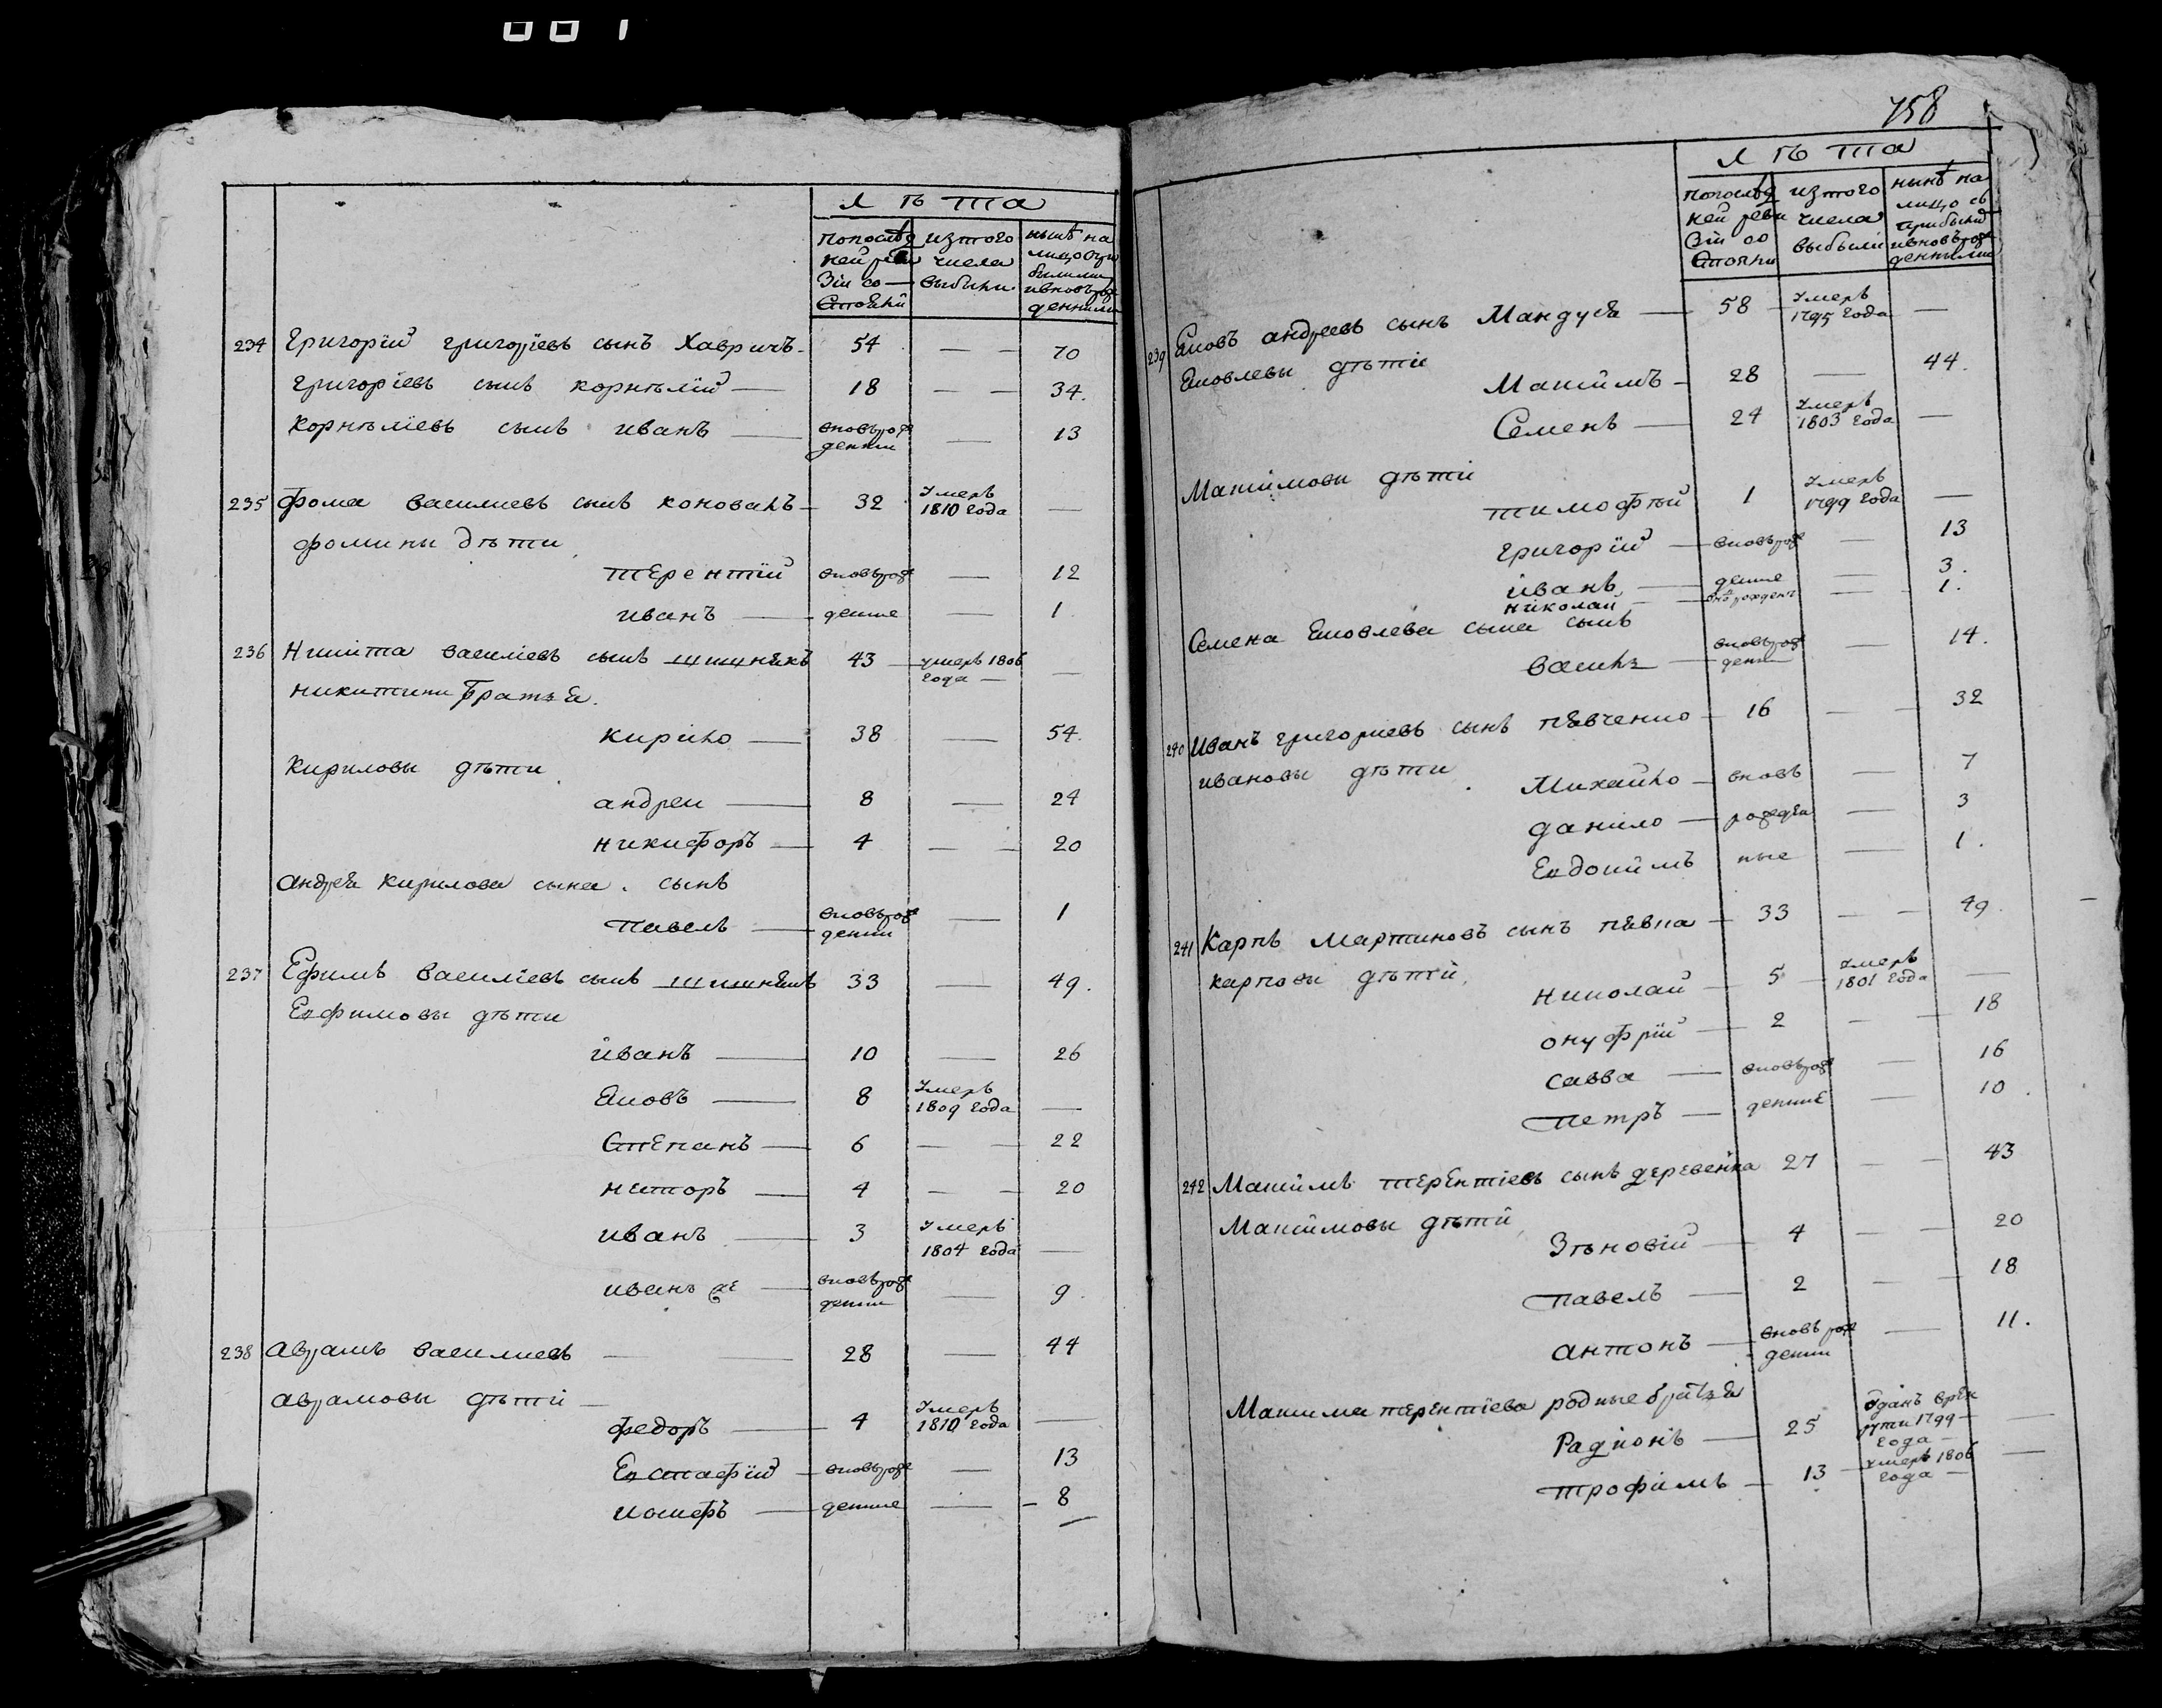 001
лѣта
по послѣд изтого нынѣ на
ней реви числа лицо при
зіи со выбыли былими
стояли ивновърож
денными
234 Григорій григоріевъ сынъ Хавричъ 54 — — 70
григоріевъ сынъ корнѣлій — 18 — — 34.
корнѣліевъ сынъ иванъ — вновьрож денни — 13
235 Фома василиевъ сынъ коновалъ 32 умеръ 1810 года —
фомины дѣти
терентій вновьрож — 12
иванъ — денние — 1
236 Никита василіевъ сынъ 43 умеръ 1806 года — —
никитини братья.
кирило — 38 — 54.
кириловы дѣти
андреи — 8 — 24
никифоръ — 4 — — 20
андрея кирилова сына. сынъ
павелъ — вновьрож денни — 1
237 Ефимъ василіевъ сынъ 33 — 49.
Евфимовы дѣти
иванъ — 10 — 26
Яковъ — 8 умеръ 1809 года —
Степанъ — 6 — — 22
несторъ — 4 — — 20
иванъ — 3 умеръ 1804 года —
иванъ же — вновьрож денни — 9.
238 аврамъ василиевъ — — 28 — 44
аврамовы дѣти —
федоръ — 4 умеръ 1810 года —
Евстафій — вновьрож — 13
иосифъ — денние — 8
758
лѣта
по послѣд изтого нынѣ на
ней реви числа лицо съ
зіи со выбыли прибылы
стояли ивновърож
денными
239 Яковъ андреевъ сынъ Мандуся — 58 умеръ 1795 года —
Яковлевы дѣти
Максимъ — 28 — 44.
Семенъ — 24 умеръ 1803 года —
Максимовы дѣти
тимофѣй 1 умеръ 1799 года —
григорій — вновьрож — 13
иванъ — денние — 3.
николай — вновъ рожден — 1.
Семена Яковлева сына сынъ
василь — вновьрож денни — 14.
240 Иванъ григориевъ сынъ пѣвченко — 16 — — 32
ивановы дѣти
Михайло — вновъ — 7
данило — рожден — 3
Евдокимъ ные — 1.
241 Карпъ Мартиновъ сынъ певна — 33 — — 49.
карповы дѣти.
николай — 5 умеръ 1801 года —
онуфрій — 2 — — 18
савва — вновьрож — 16
петръ — денние — 10.
242 Максимъ терентіевъ сынъ деревенка 27 — — 43
Максимовы дѣти
Зѣновій — 4 — — 20
павелъ — 2 — — 18
антонъ — вновъ рож денни — 11.
Максима терентіева родные братья
Радионъ — 25 — отданъ врек рути 1799 — года — —
трофимъ — 13 — умеръ 1806 года — —